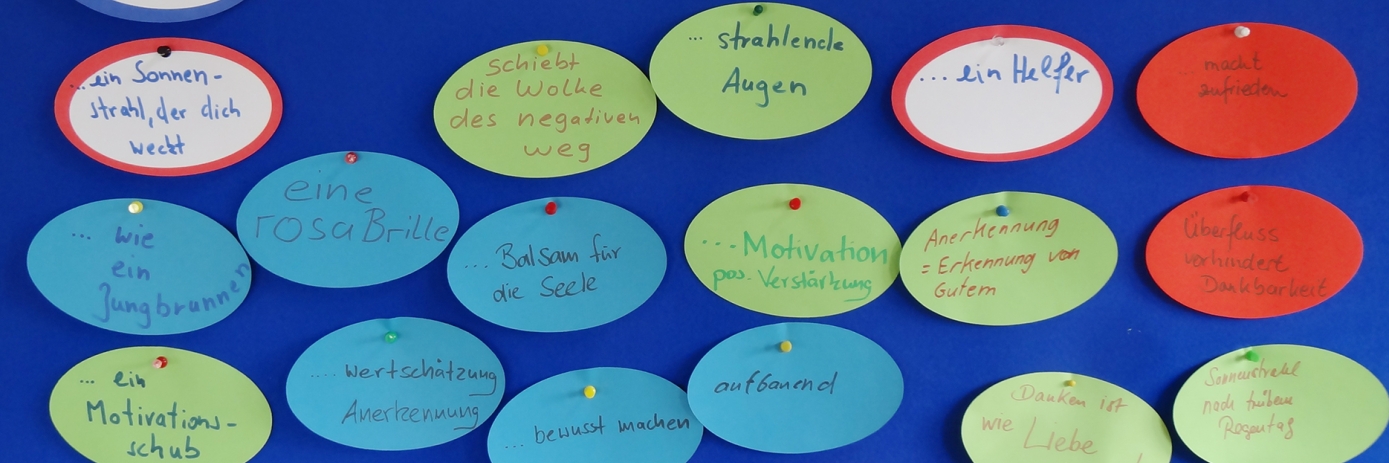 ...ein Sonnen-
strahl, der dich
weckt
schiebt
die Wolke
des negativen
weg
... strahlende
Augen
...ein Helfer
macht
zufrieden
... wie
ein
Jungbrunnen
eine
rosa Brille
... Balsam für
die Seele
...Motivation
pos. Verstärkung
Anerkennung
= Erkennung von
Gutem
Überfluss
verhindert
Dankbarkeit
... ein
Motivations-
schub
..... wertschätzung
Anerkennung
... bewusst machen
aufbauend
Danken ist
wie Liebe
Sonnenstrahl
nach trübem
Regentag